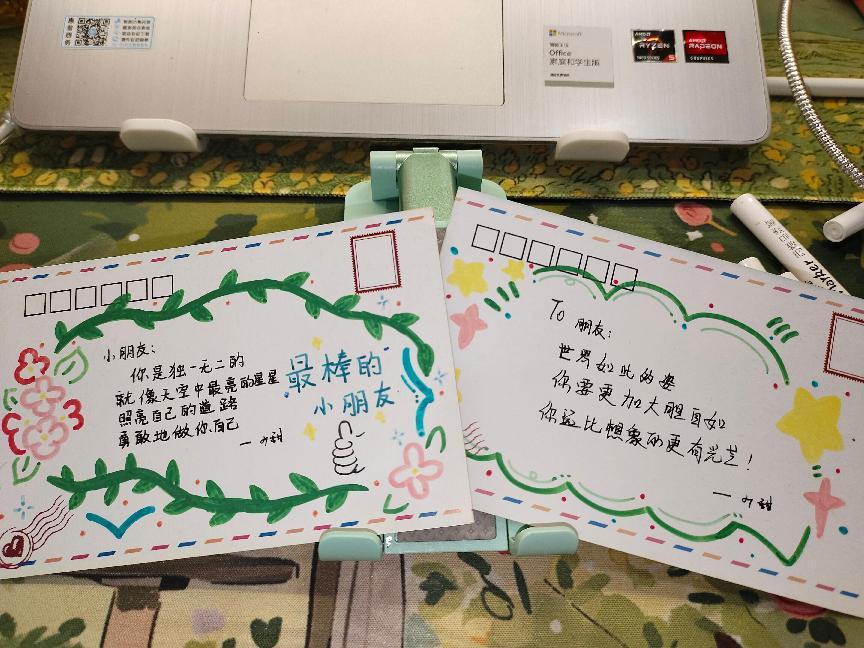 Microsoft
Office
家庭和学生版
AMD
RYZEN
5
AMD
RADEON
GRAPHICS
marker
小朋友：
你是独一无二的
就像天空中最亮的星星
照亮自己的道路
勇敢地做你自己
最棒的
小朋友
To 朋友：
世界如此的
你要更加大胆自如
你远比想象的更有光芒！